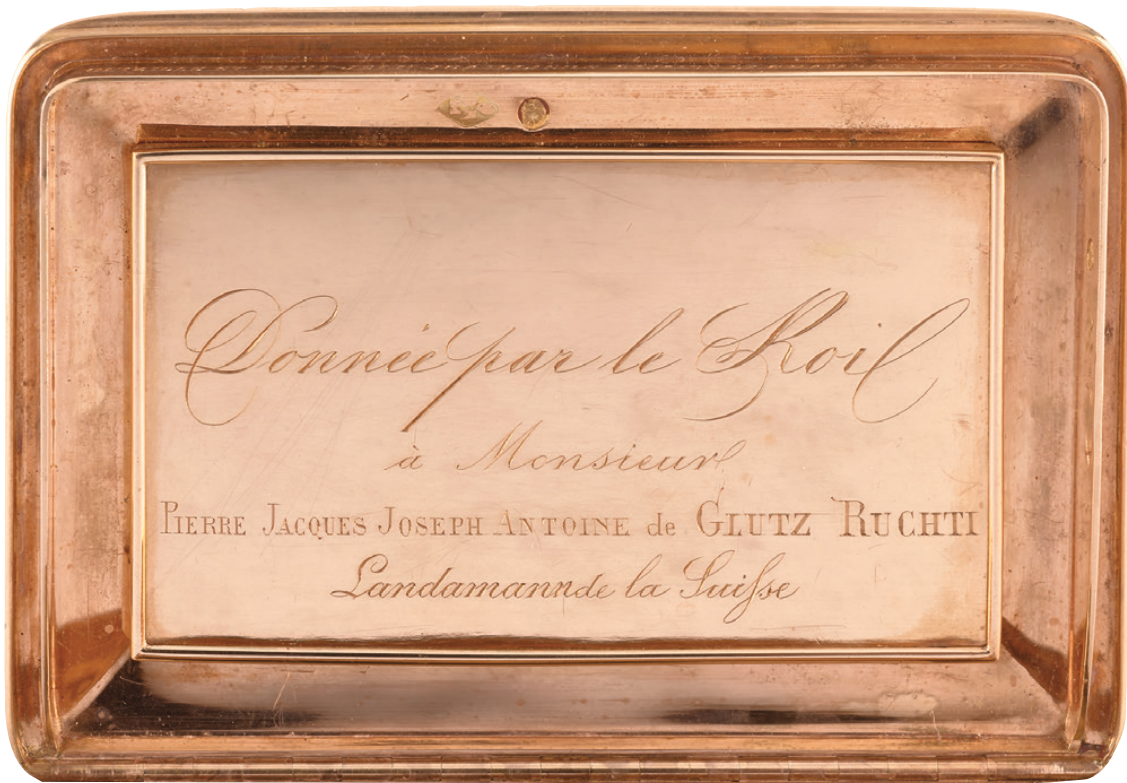 Donnée par le Roi
à Monsieur
PIERRE JACQUES JOSEPH ANTOINE de GLUTZ RUCHTI
Landamann de la Suiſse